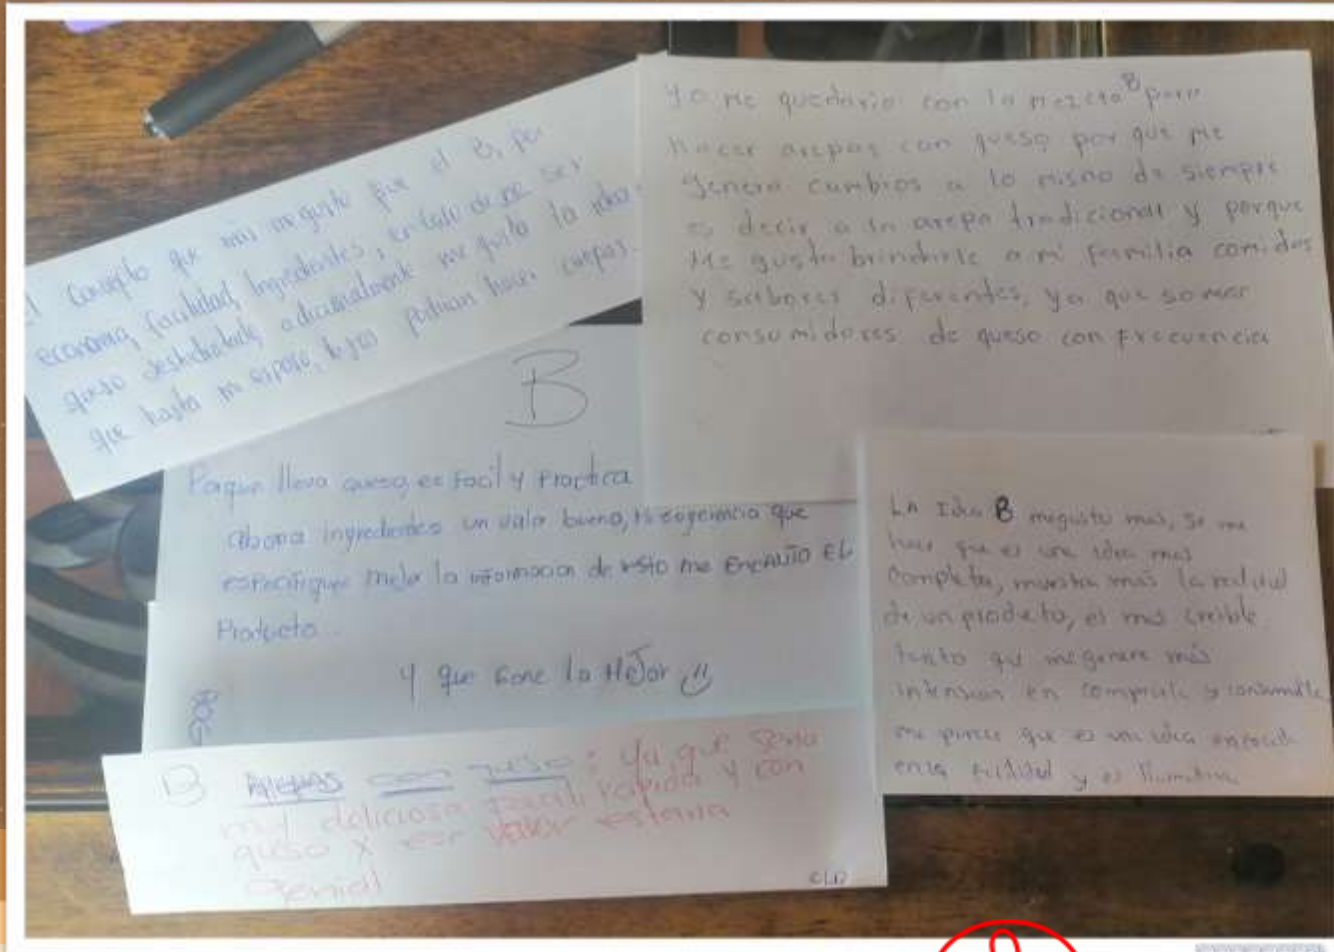 El concepto que más me gusto fue el B, por
economia, facilidad, Ingredientes, en caso de no ser
queso deshidratado, adicionalmente me gusto la idea
que hasta mi esposo, hijos podrian hacer arepas.
Yo me quedaria con la mezcla B para
hacer arepas con queso por que me
genera cambios a lo mismo de siempre
es decir a la arepa tradicional y porque
Me gusta brindarle a mi familia comidas
y sabores diferentes, ya que somos
consumidores de queso con frecuencia
B
Porque lleva queso, es facil y Practica
ahorra ingredientes un valor bueno, mi sugerencia que
especifiquen mejor la informacion de resto me ENCANTO EL
Producto.
Y que Gane la MeJor
LA Idea B me gusta mas, se me
hace que es una idea mas
completa, muestra mas la realidad
de un producto, es mas creible
tanto que me genera más
intension en comprarle y consumirle
me parece que es una idea
en la facilidad y es llamativa
B AREPAS con queso: ya que seria
muy deliciosa facil rapida y con
queso x ese valor estaria
Genial!